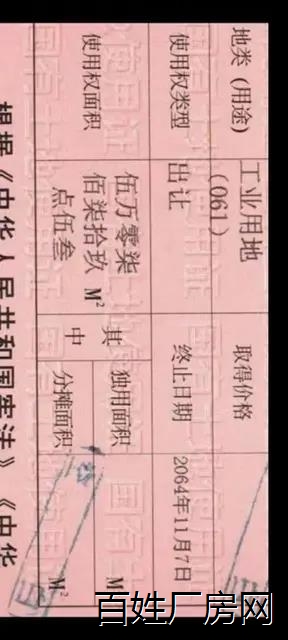 地类（用途）
工业用地
（061）
取得价格
使用权类型
出让
终止日期
2064年11月7日
使用权面积
伍万零柒
佰柒拾玖 M²
点伍叁
其
中
独用面积
M²
分摊面积
M²
根据《中华人民共和国宪法》《中华
百姓厂房网